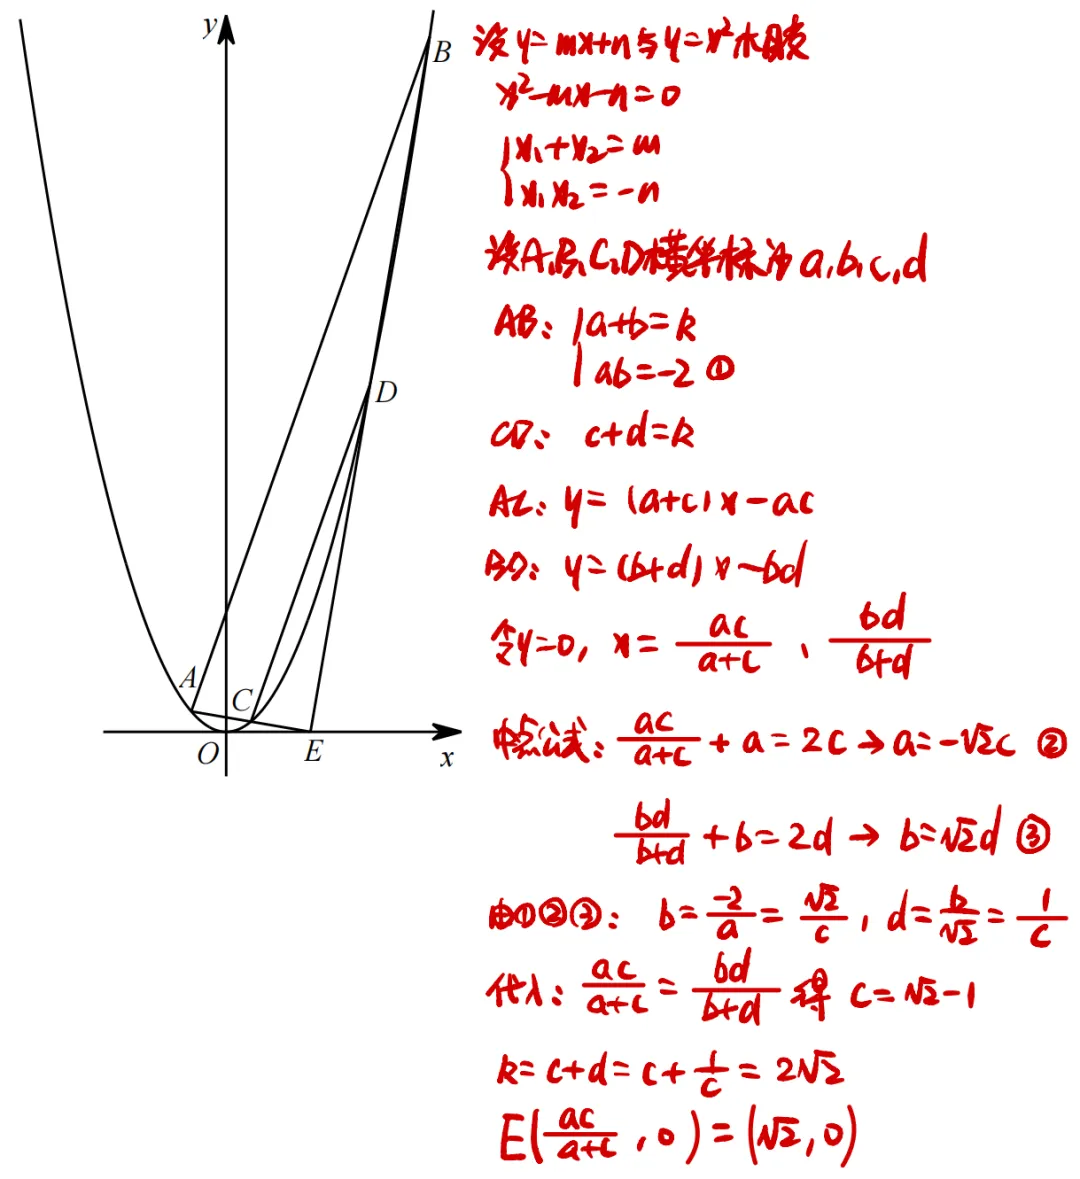 y
B
D
A
C
O
E
x
设y=mx+n与y=x²相交
x²-mx-n=0
{x₁+x₂=m
x₁x₂=-n
设A,B,C,D横坐标为a,b,c,d
AB: {a+b=k
ab=-2 ①
CD: c+d=k
AC: y=(a+c)x-ac
BD: y=(b+d)x-bd
令y=0, x=ac/(a+c)、bd/(b+d)
中点公式: ac/(a+c)+a=2c→a=-√2c ②
bd/(b+d)+b=2d→b=√2d ③
由①②③: b=-2/a=√2/c, d=b/√2=1/c
代入: ac/(a+c)=bd/(b+d) 得 c=√2-1
k=c+d=c+1/c=2√2
E(ac/(a+c),0)=(√2,0)